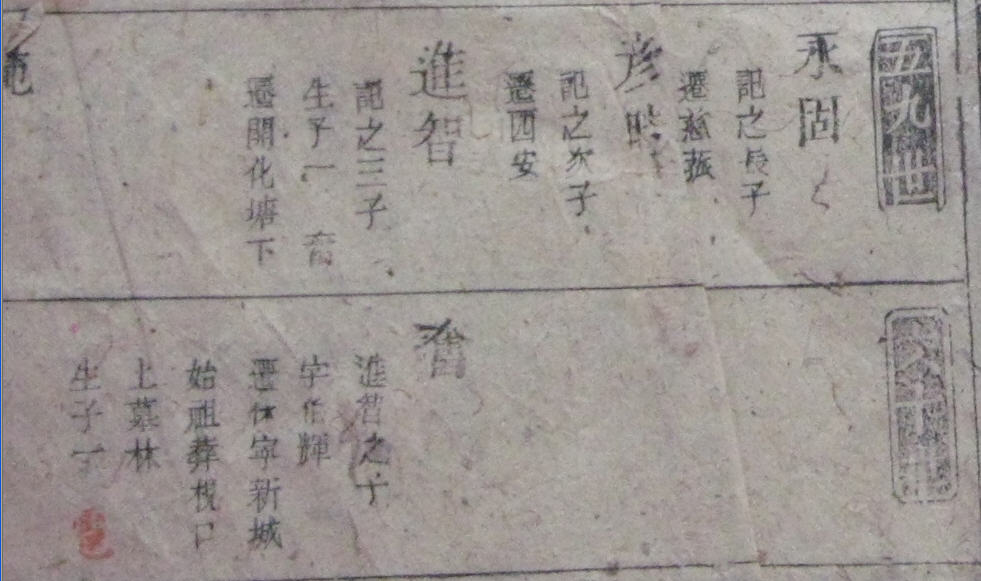 五九世
永固
記之長子
遷
彦
記之次子
遷西安
進智
記之三子
生子一
遷開化塘下
六十世
進智之子
字伯輝
遷休寧新城
始祖葬梘口
上墓林
生子一